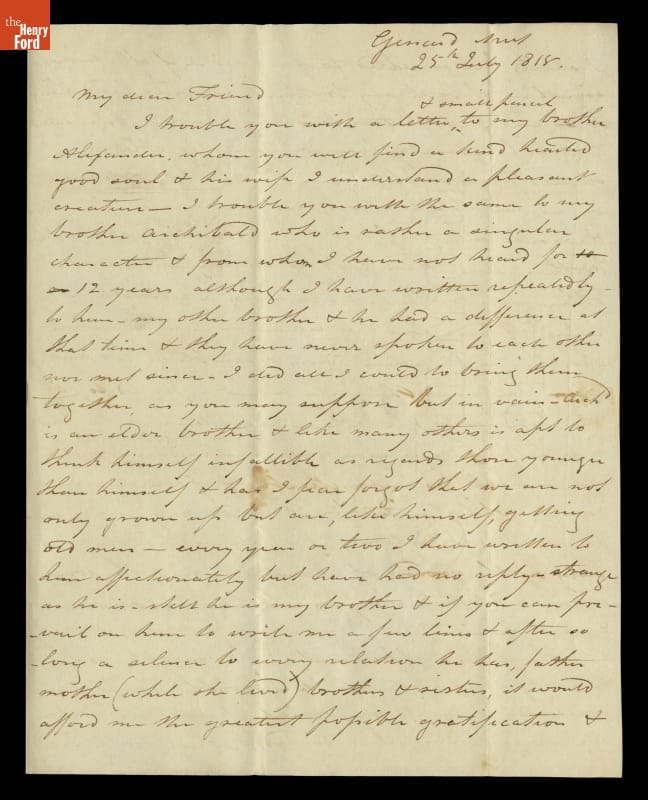 the
Henry
Ford
25th July 1818.
My dear Friend
& small parcel
I trouble you with a letter ^ to my brother
Alexander, whom you will find a kind hearted
good soul & his wife I understand a pleasant
creature – I trouble you with the same to my
brother Archibald who is rather a singular
character & from whom I have not heard for
12 years although I have written repeatedly
to him – my other brother & he had a difference at
that time & they have never spoken to each other
nor met since – I did all I could to bring them
together, as you may suppose but in vain – Archd
is an elder brother & like many others is apt to
think himself infallible as regards those younger
than himself & has I fear forgot that we are not
only grown up but are, like himself, getting
old men – every year or two I have written to
him affectionately but have had no reply – strange
as he is – still he is my brother & if you can pre-
-vail on him to write me a few lines & after so
-long a silence to every relation he has, father
mother (while she lived) brothers & sisters, it would
afford me the greatest possible gratification &